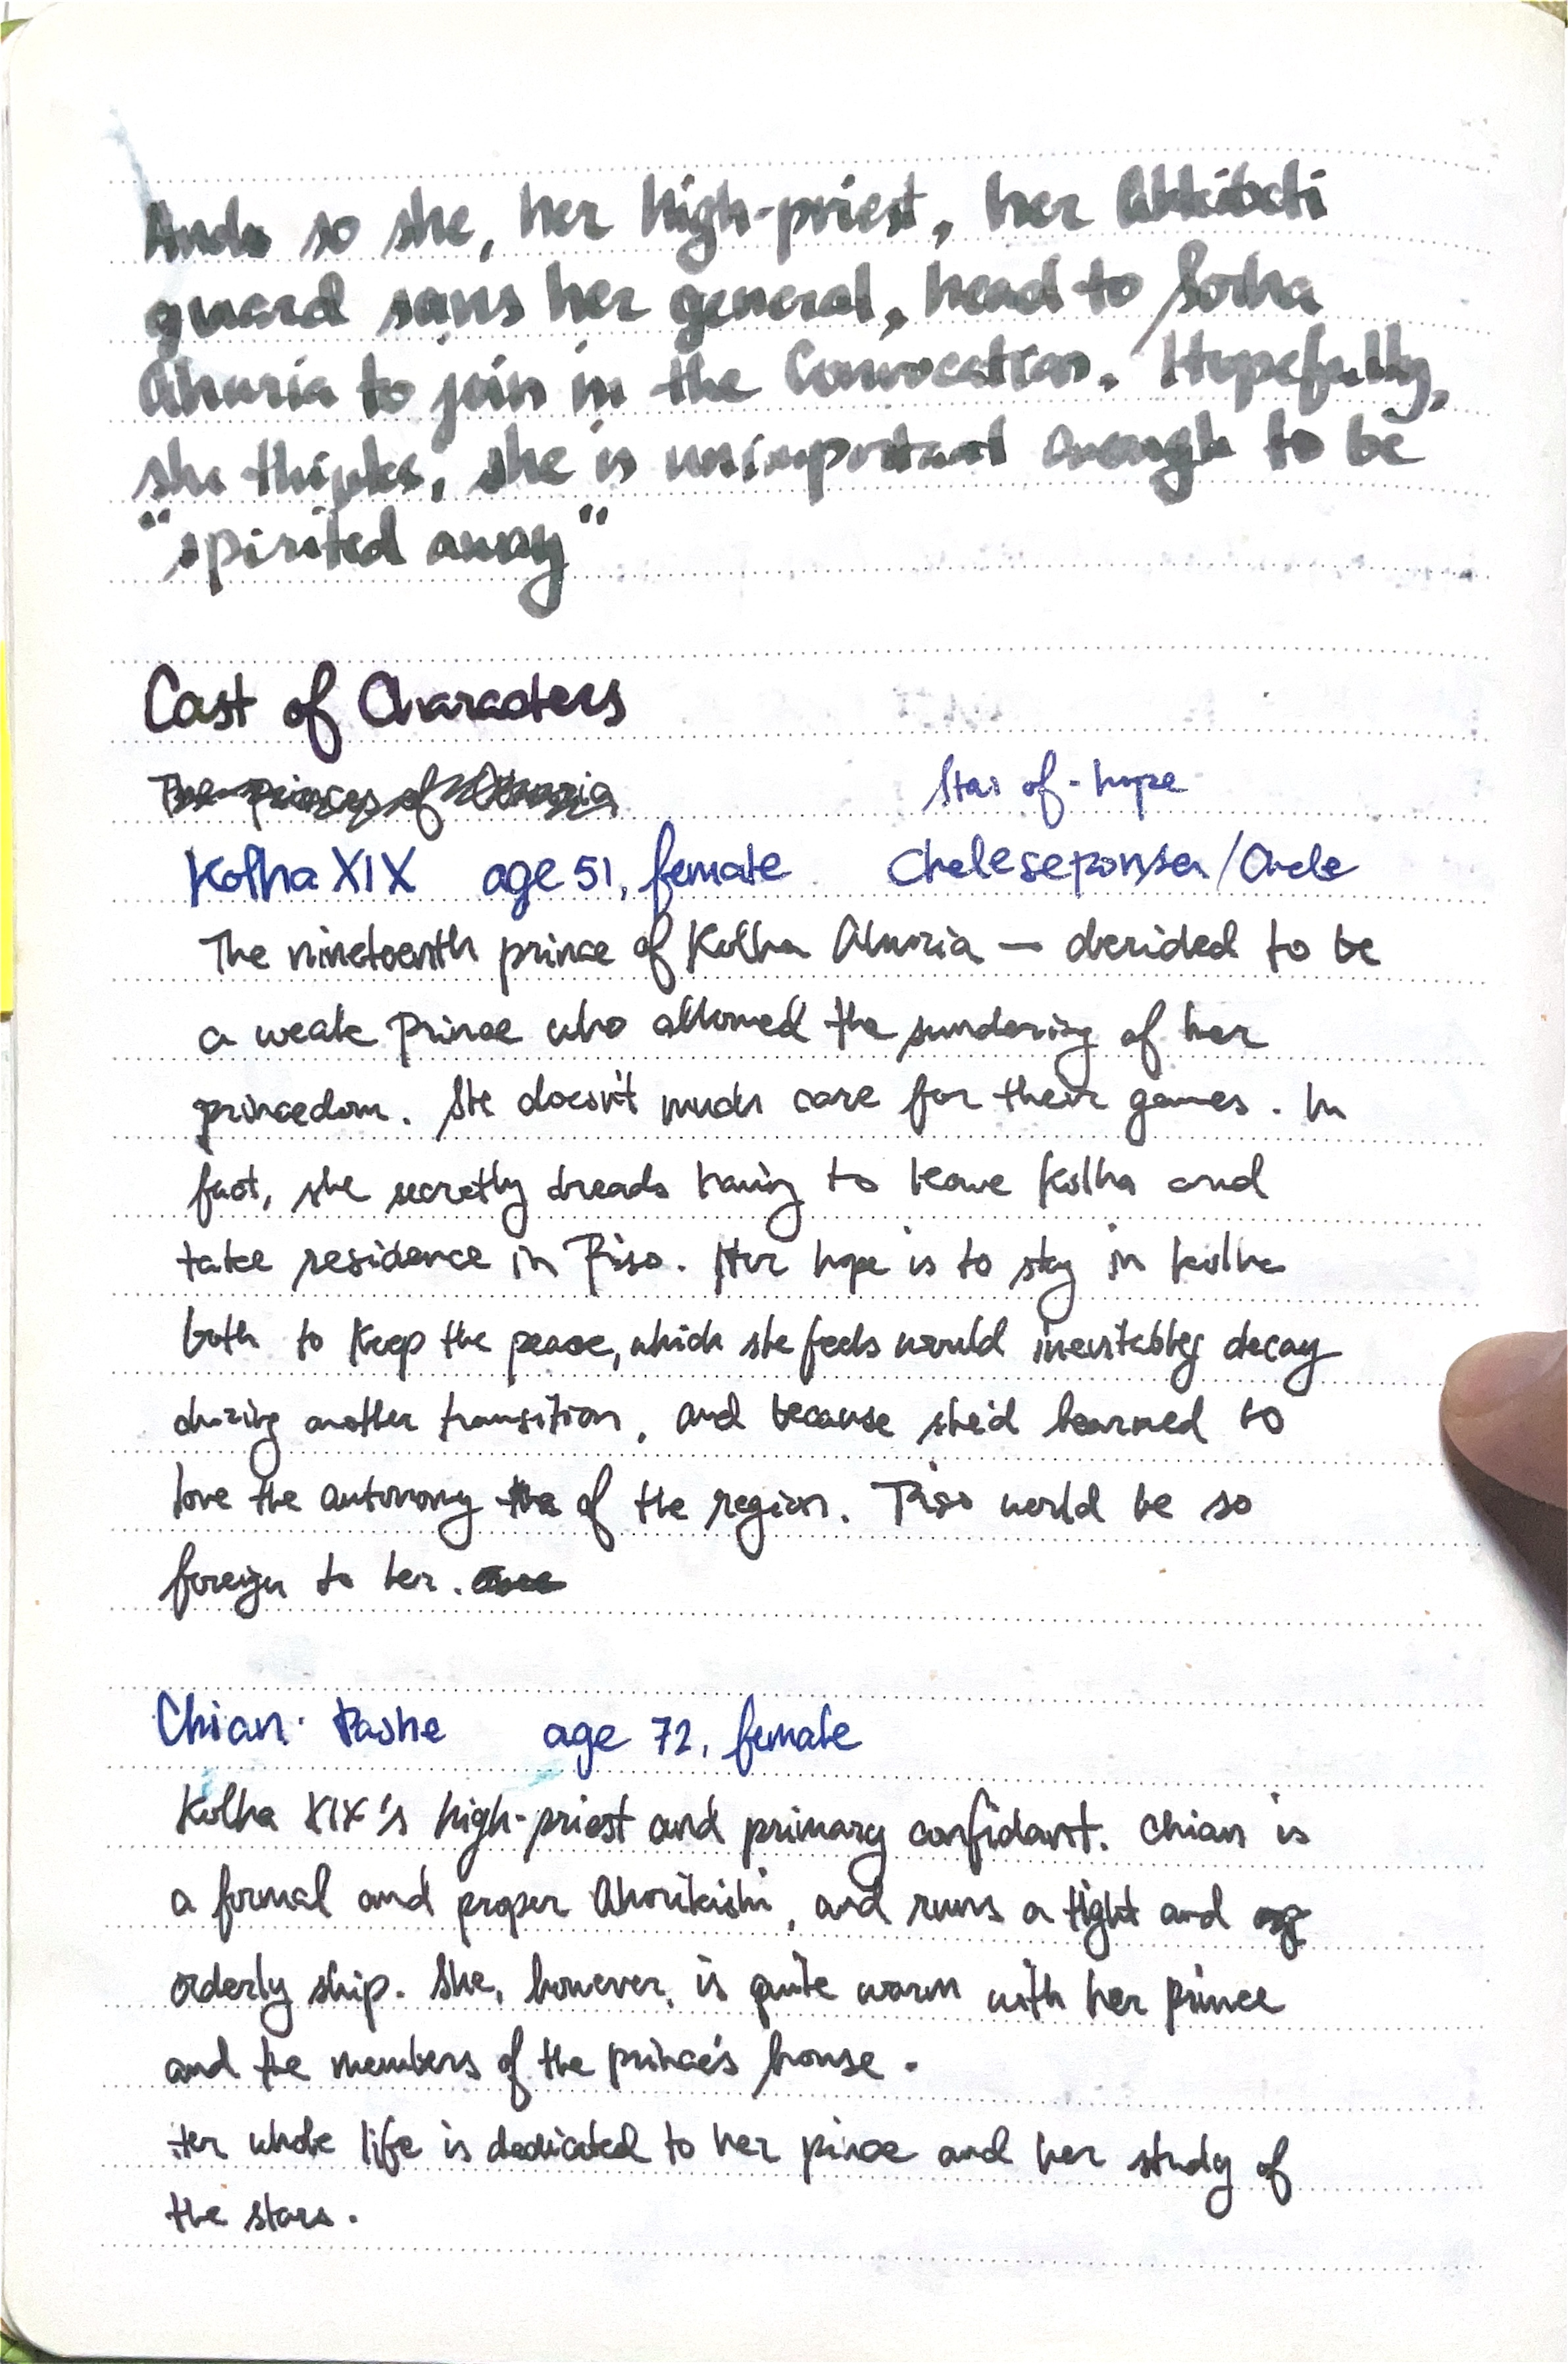 And so she, her high-priest, her
guard sans her general, head to Sorha
Ahuria to join in the Convocation. Hopefully,
she thinks, she is unimportant enough to be
"spirited away"
Cast of Characters
Star of-hope
Kolha XIX age 51, female
The nineteenth prince of Kolha Ahuria — derided to be
a weak prince who allowed the sundering of her
princedom. She doesn't much care for their games. In
fact, she secretly dreads having to leave Kolha and
take residence in Piso. Her hope is to stay in Kolha
both to keep the peace, which she feels would inevitably decay
during another transition, and because she'd learned to
love the autonomy of the region. Piso would be so
foreign to her.
Chian Pashe age 72, female
Kolha XIX's high-priest and primary confidant. Chian is
a formal and proper Ahorikishi, and runs a tight and
orderly ship. She, however, is quite warm with her prince
and the members of the prince's house.
Her whole life is dedicated to her pince and her study of
the stars.